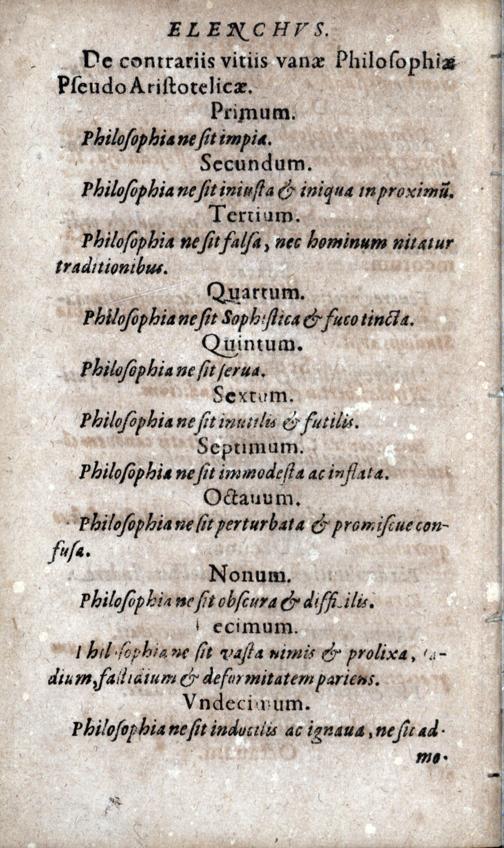 ELENCHVS.
De contrariis vitiis vanæ Philoſophiæ
Pſeudo Ariſtotelicæ.
Primum.
Philoſophia ne ſit impia.
Secundum.
Philoſophia ne ſit iniuſta & iniqua in proximū.
Tertium.
Philoſophia ne ſit falſa, nec hominum nitatur
traditionibus.
Quartum.
Philoſophia ne ſit Sophiſtica & fuco tincta.
Quintum.
Philoſophia ne ſit ſerua.
Sextum.
Philoſophia ne ſit inutilis & futilis.
Septimum.
Philoſophia ne ſit immodeſta ac inflata.
Octauum.
Philoſophia ne ſit perturbata & promiſcue con-
fuſa.
Nonum.
Philoſophia ne ſit obſcura & difficilis.
ecimum.
Philoſophia ne ſit vaſta nimis & prolixa,
dium, faſtidium & deformitatem pariens.
Vndecimum.
Philoſophia ne ſit inductilis ac ignaua, ne ſit ad-
mo-